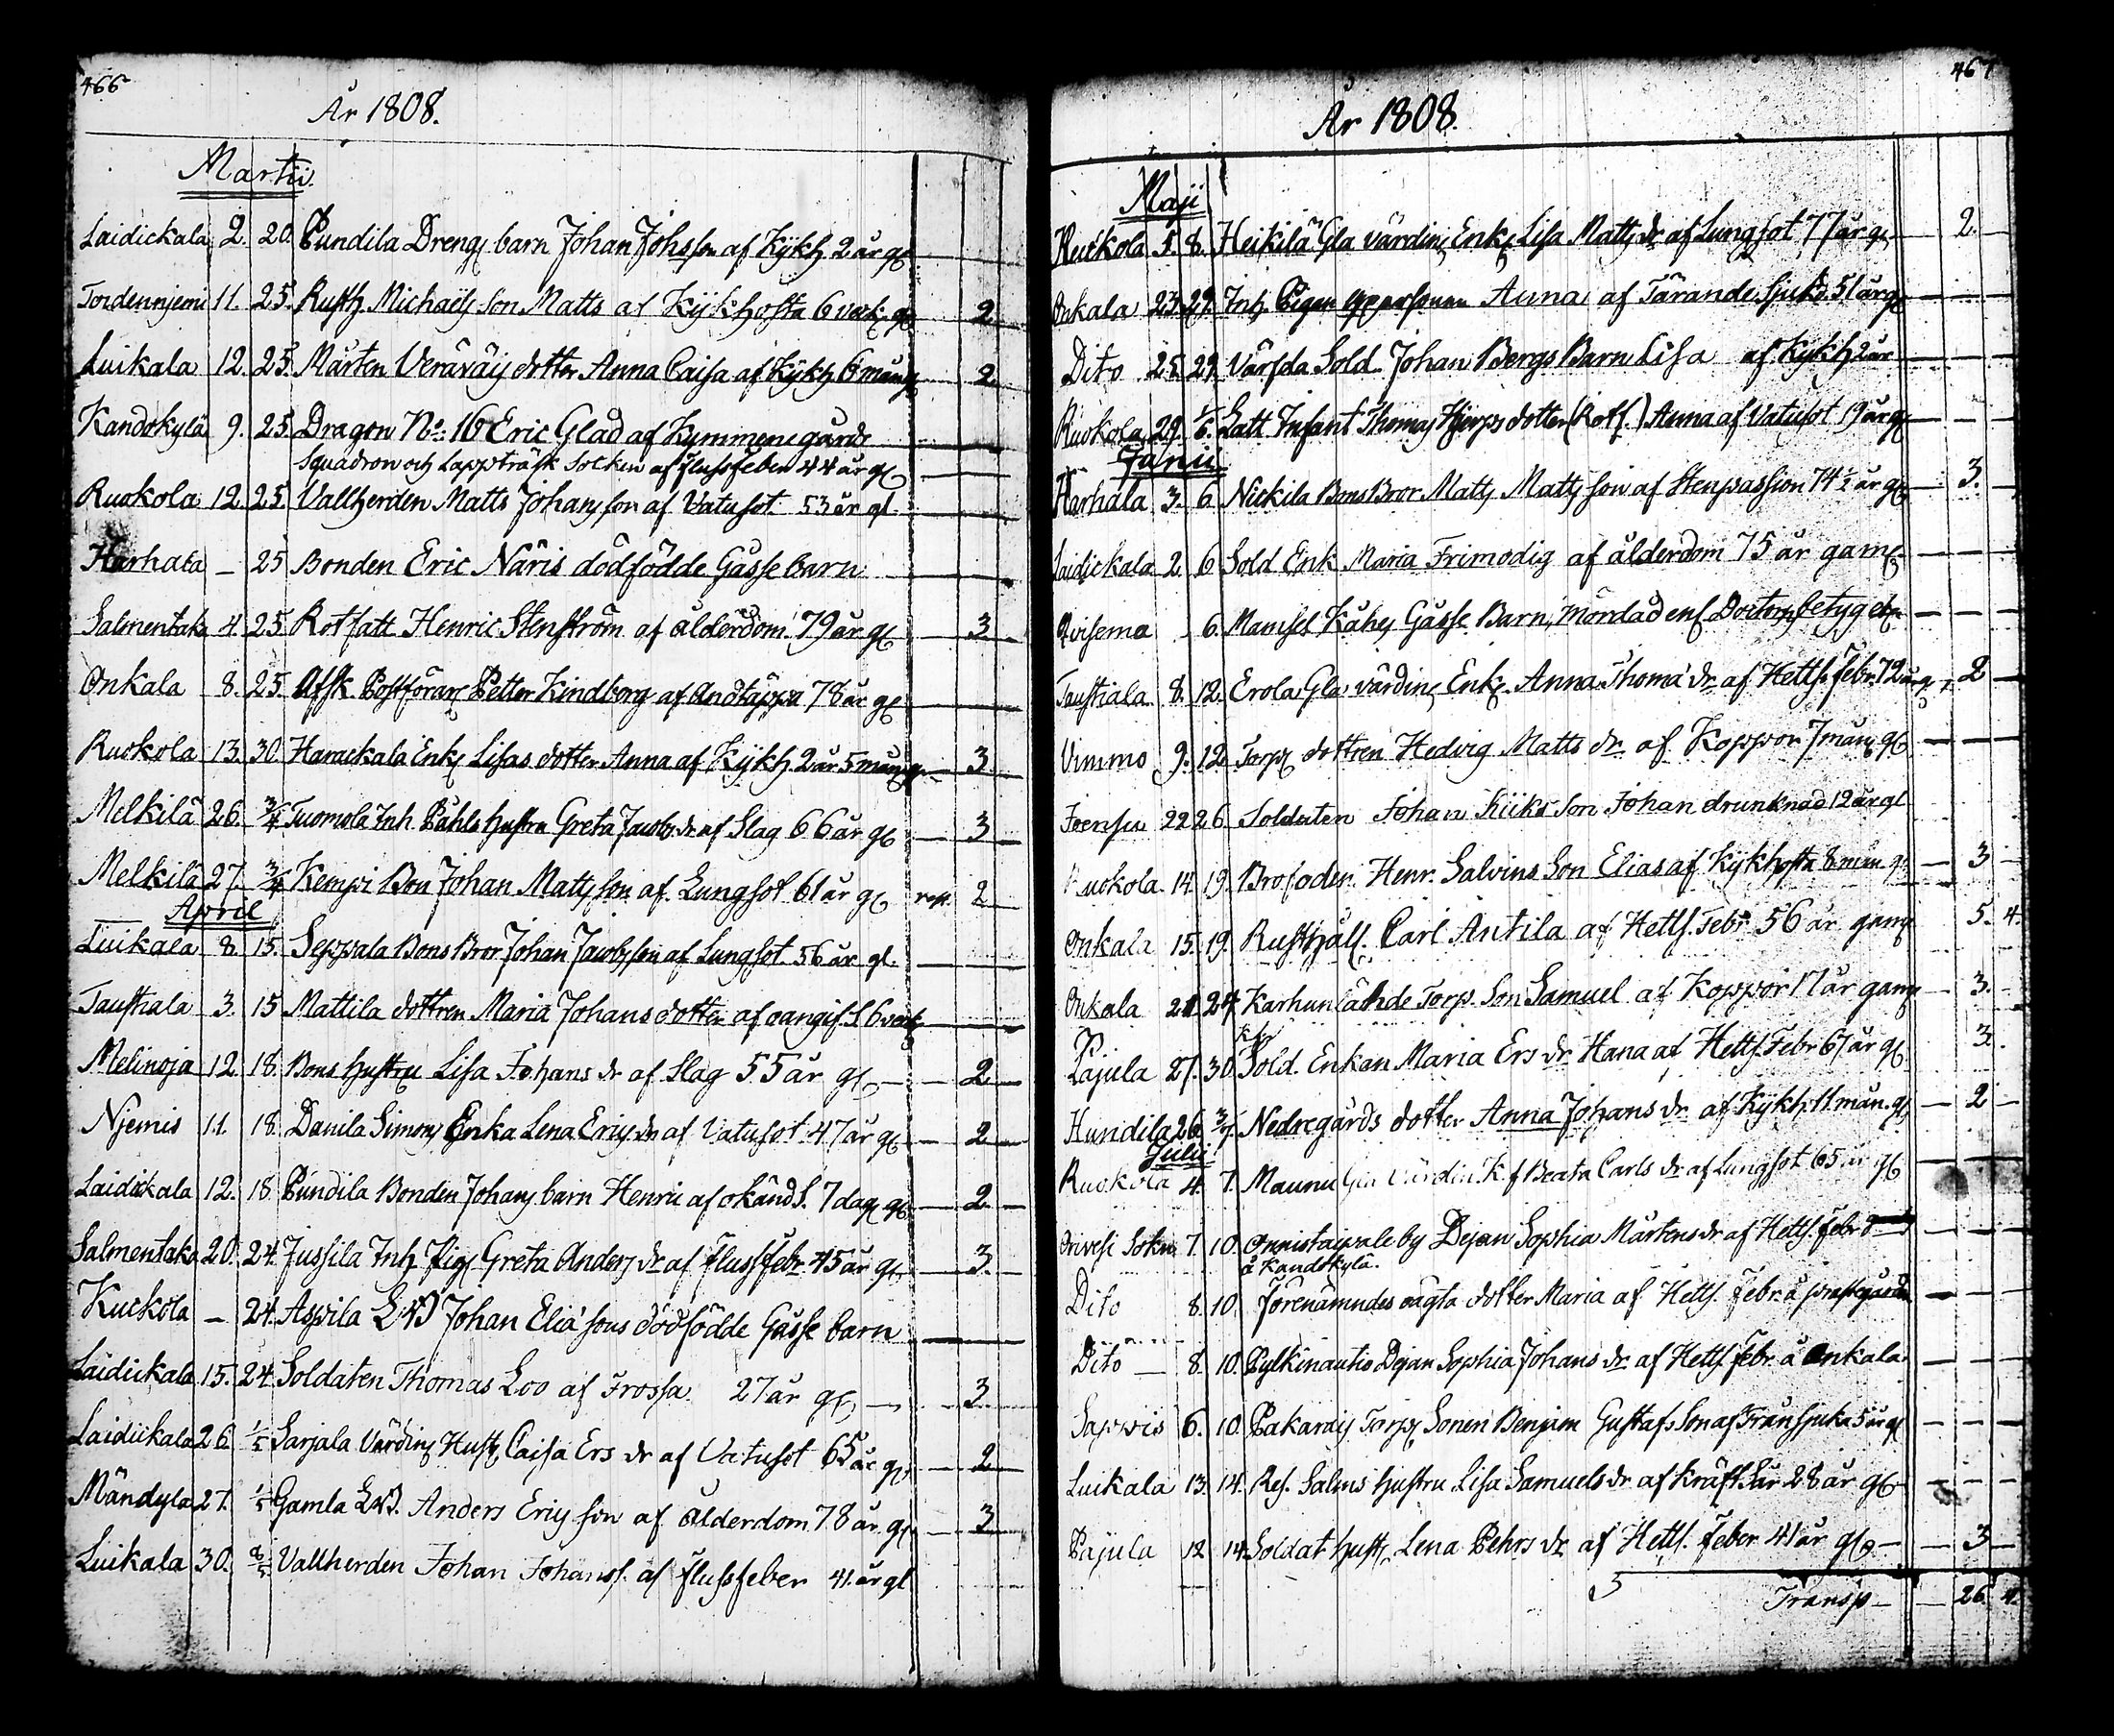 466
År 1808.
Martii.
Laidickala 2. 20. Pundila Dreng barn Johan Johsson af Kykh 2 år gl
Tordennjemi 11. 25. Rusth. Michaëls Son Matts af Kykhosta 6 veck. gl 2
Luikala 12. 25. Mårten dotter Anna Caisa af Kykh 6 mån 2
Kandokylä 9. 25. Dragon No: 16 Eric Glad af Kymmenegårds
Squadron och Lappträsk Socken af flussfeber 44 år gl
Ruokola 12. 25. Vallherden Matts Johansson af Vatusot 53 år gl.
Harhala — 25 Bonden Eric Näris dödfödde Gåsse barn
Salmentaka 4. 25. Rotfatt. Henric Stenström af ålderdom 79 år gl 3
Onkala 8. 25. Afsk. Postförare Petter Kindborg af Andtäppa 78 år gl
Ruokola 13. 30. Harackala Enk Lisas dotter Anna af Kykh 2 år 5 mån 3
Melkilä 26. 3/4 Tuomola Inh Påhls hustru Greta Jacobs dr af Slag 66 år gl 3
Melkilä 27. 3/4 Kempi Bon Johan Mattsson af Lungsot 61 år gl rest. 2
April
Luikala 8. 15. Seppala Bons Bror Johan Jacobsson af Lungsot 56 år gl.
Taustiala 3. 15 Mattila dottren Maria Johans dotter af oangif. S. 6 veck
Melinoja 12. 18. Bons hustru Lisa Johans dr af Slag 55 år gl 2
Njemis 11. 18. Danila Simons Enka Lena Erics dr af Vatusot 47 år gl 2
Laidickala 12. 18. Pundila Bonden Johans barn Henric af okänd S. 7 dag gl 2
Salmentaka 20. 24. Jussila Inh Pig Greta Anders dr af flussfebr 45 år gl 3.
Kuckola — 24. Aspila Johan Elia sons dödfödde Gåsse barn
Laidickala 15. 24. Soldaten Thomas Loo af Frossa 27 år gl 3
Laidickala 26. 1/5 Sarjala Värdins Hust Caisa Ers dr af Vatusot 65 år gl 2
Mändylä 27. 1/5 Gamla Anders Ericsson af ålderdom 78 år gl 3
Luikala 30. 8/5 Vallherden Johan Johanss. af flussfeber 41. år gl
467
År 1808.
Maji
Kuckola 5. 8. Heikilä Gla värdin Enk Lisa Matts dr af Lungsot 77 år gl 2.
Onkala 23. 29. Inh. Pigan Anna af Tärande Sjukd. 51 år gl
Dito 25. 29. Värfda Sold. Johan Bergs Barn Lisa af Kykh 2 år
Ruokola 29. 5/6. Latt Infant Thomas Hjerps dotter (Rotf.) Anna af Vatusot 19 år gl
Junii
Harhala 3. 6. Nickila Bons Bror Matts Mattsson af Stenpassion 74 1/2 år gl 3.
Laidickala 2. 6 Sold Enk Maria Frimodig af ålderdom 75 år gaml
Qvisema 6. Mamsel Kåhes Gåsse Barn, mördad enl Doctors betyg
Taustiala 8. 12. Erola Gla värdin Enk. Anna Thoma dr af Hetts. febr. 72 år 2
Vimmo 9. 12. Torp dottren Hedvig Matts dr af Koppor 7 mån gl
Joensu 22 26 Soldaten Johan Kiiks Son Johan drunknad 12 år gl
Ruokola 14 19. Brofoder Henr. Salvins Son Elias af Kykhosta 8 mån. gl 3
Onkala 15. 19. Rusthåll. Carl Antila af Hetts. Febr 56 år gaml 5. 4.
Onkala 21 24 Karhun lände Torp. Son Samuel af Koppor 17 år gaml 3.
Pajula 27. 30. Sold. Enkan Maria Ers dr Hana af Hetts. Febr 67 år gl 3.
Hundila 26 3/7. Nedregårds dotter Anna Johans dr af Kykh 11 mån. gl 2
Julii
Ruokola 4. 7. Maunu Gla Värdin Beata Carls dr af Lungsot 65 år gl
Orivesi Sokn 7. 10. Onnistaipale by Dejan Sophia Mårtens dr af Hetts. febr
å Kandokylä.
Dito 8. 10. förenämndes oägta dotter Maria af Hetts. febr. å prestgården
Dito — 8. 10. Pylkinautio Dejan Sophia Johans dr af Hetts. febr. å Onkala
Sappis 6. 10. Torp. Sonen Benjam Gustafs Son af Frånsjuka 5 år gl
Luikala 13. 14. Res. Salms hustru Lisa Samuels dr af Kräft Sår 28 år gl
Pajula 12 14. Soldat hust Lena Pehrs dr af Hetts. feber 41 år gl 3
Transp — 26. 4.